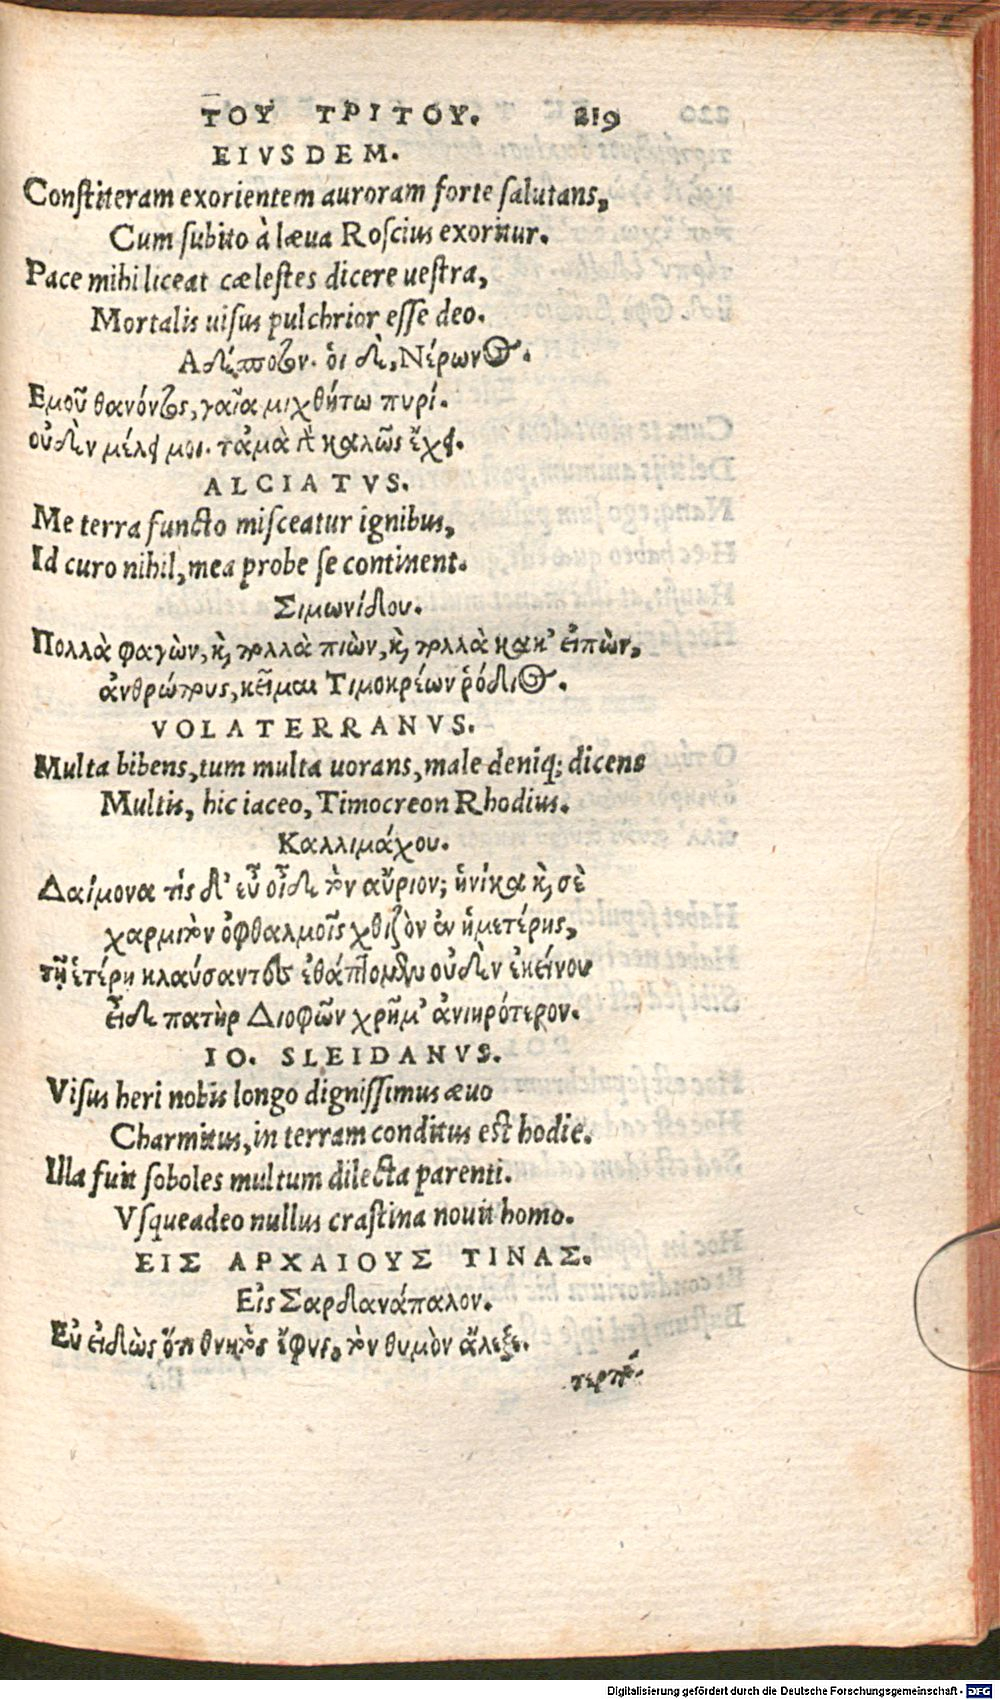 ΤΟΥ ΤΡΙΤΟΥ. 219
EIVSDEM.
Constiteram exorientem auroram forte salutans,
Cum subito à læua Roscius exoritur.
Pace mihi liceat cælestes dicere uestra,
Mortalis uisus pulchrior esse deo.
Αδέσποτον. ὁι δὲ, Νέρωνος.
Εμοῦ θανόντος, γαῖα μιχθήτω πυρί.
οὐδὲν μέλει μοι. τἀμὰ γὰ καλῶς ἔχει.
ALCIATVS.
Me terra functo misceatur ignibus,
Id curo nihil, mea probe se continent.
Σιμωνίδου.
Πολλὰ φαγὼν, καὶ πολλὰ πιὼν, καὶ πολλὰ κακ' εἰπὼν,
ἀνθρώπους, κεῖμαι Τιμοκρέων ῥόδιος.
VOLATERRANVS.
Multa bibens, tum multa uorans, male deniq; dicens
Multis, hic iaceo, Timocreon Rhodius.
Καλλιμάχου.
Δαίμονα τίς δ' εὖ οἶδε τὸν αὔριον; ἡνίκα καὶ σὲ
χαρμιτὸν ὀφθαλμοῖς χθιζὸν ἐν ἡμετέρης,
τῇ ἑτέρῃ κλαύσαντες ἐθάπτομεν οὐδὲν ἐκείνου
εἶδε πατὴρ Διοφῶν χρῆμ' ἀνιηρότερον.
IO. SLEIDANVS.
Visus heri nobis longo dignissimus æuo
Charmitus, in terram conditus est hodie.
Illa fuit soboles multum dilecta parenti.
Vsqueadeo nullus crastina nouit homo.
ΕΙΣ ΑΡΧΑΙΟΥΣ ΤΙΝΑΣ.
Εἰς Σαρδανάπαλον.
Εὐ εἰδὼς ὅτι θνητὸς ἔφυς, τὸν θυμὸν ἄλεξε.
τερπό-
Digitalisierung gefördert durch die Deutsche Forschungsgemeinschaft - DFG